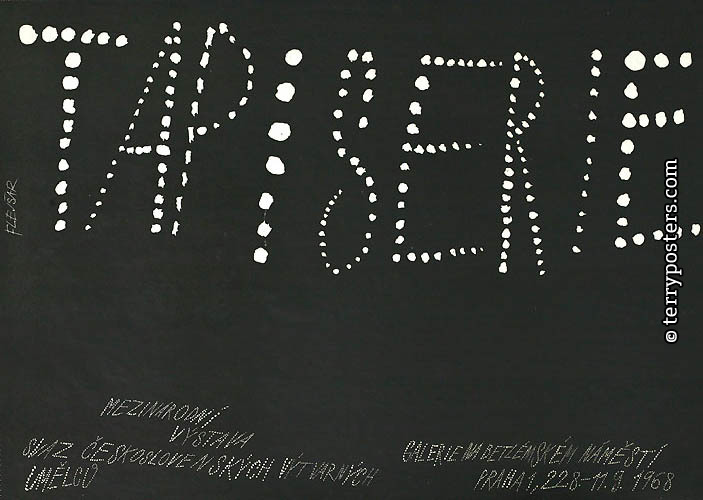 TAPISERIE
FLEJŠAR
MEZINÁRODNÍ
VÝSTAVA
SVAZ ČESKOSLOVENSKÝCH VÝTVARNÝCH
UMĚLCŮ
GALERIE NA BETLÉMSKÉM NÁMĚSTÍ
PRAHA 1, 22.8.-11.9. 1968
© terryposters.com